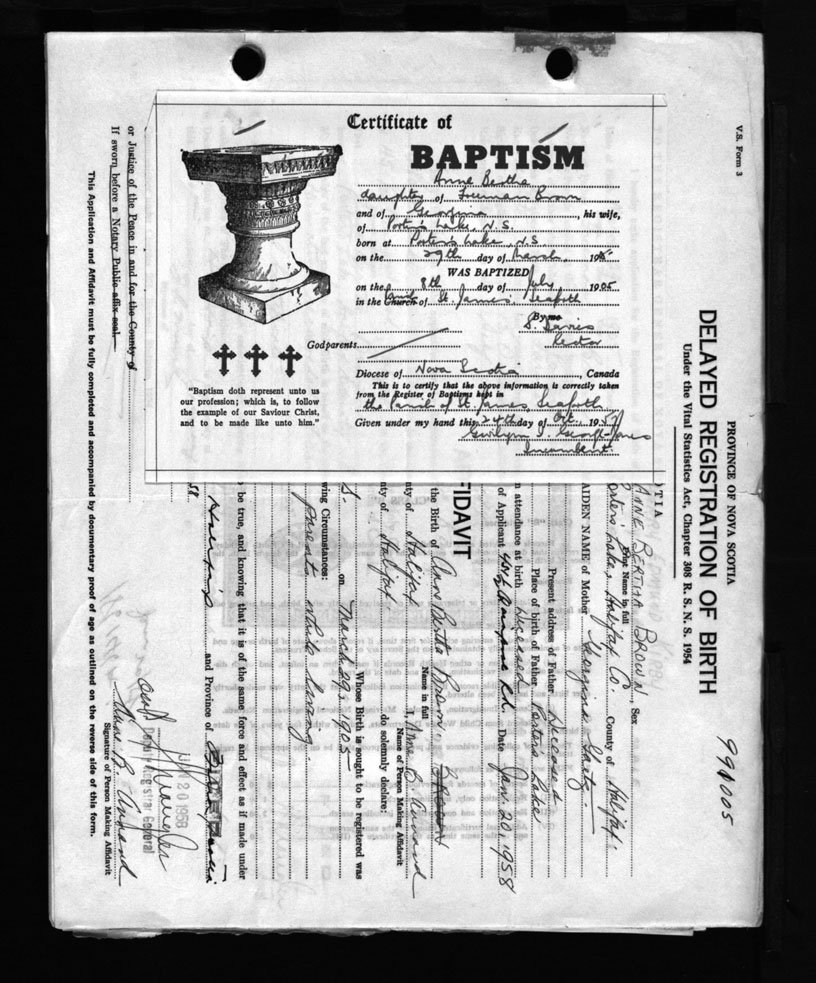 Certificate of
BAPTISM
Anne Bertha
daughter of Freeman Brown
and of Georgina, his wife,
of Porter's Lake, N.S.
born at Porter's Lake, N.S
on the 29th day of March, 1905
WAS BAPTIZED
on the 8th day of July 1905
in the Church of St. James, Seaforth
By me
S. Davies
Rector
Godparents
Diocese of Nova Scotia, Canada
This is to certify that the above information is correctly taken
from the Register of Baptisms kept in
the Parish of St James, Seaforth
Given under my hand this 24th day of Oct. 1957
Incumbent.
"Baptism doth represent unto us
our profession; which is, to follow
the example of our Saviour Christ,
and to be made like unto him."
V.S. Form 3
PROVINCE OF NOVA SCOTIA
DELAYED REGISTRATION OF BIRTH
Under the Vital Statistics Act, Chapter 308 R. S. N. S. 1954
991005
ANNE BERTHA BROWN, Sex
Print Name in full
Porter's Lake, Halifax Co. County of Halifax
AIDEN NAME of Mother Georgina
Present address of Father Deceased
Place of birth of Father Porter's Lake
n attendance at birth Deceased
of Applicant Rd. Date Jan. 20, 1958
FIDAVIT
I, Anne B. Annand
Name of Person Making Affidavit
do solemnly declare:
the Birth of Ann Bertha Brown. Brown
Name in full
nty of Halifax
nty of Halifax
Whose Birth is sought to be registered was
S. on March 29, 1905
wing Circumstances:
parents while living.
be true, and knowing that it is of the same force and effect as if made under
58.
and Province of
Deputy Registrar General
JAN 20 1958
Anne B. Annand
Signature of Person Making Affidavit
or Justice of the Peace in and for the County of
If sworn before a Notary Public affix seal.
This Application and Affidavit must be fully completed and accompanied by documentary proof of age as outlined on the reverse side of this form.